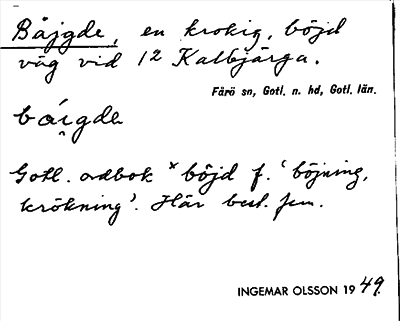 Båjgde, en krokig, böjd
väg vid 12 Kalbjärga.
Fårö sn, Gotl. n. hd, Gotl. län.
bái̯gda
Gotl. ordbok * böjd f. ‘böjning,
krökning’. Här best. fem.
INGEMAR OLSSON 1949.